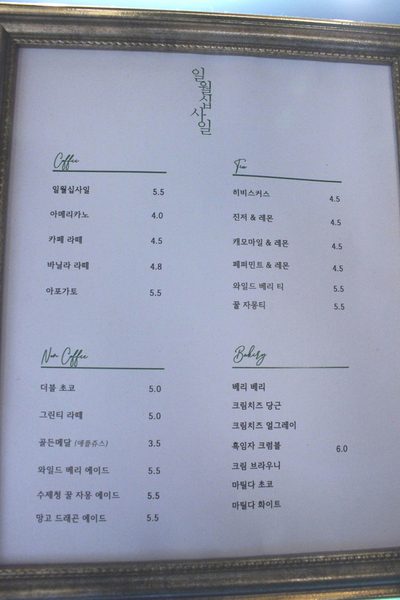 일월십사일
Coffee
일월십사일 5.5
아메리카노 4.0
카페 라떼 4.5
바닐라 라떼 4.8
아포가토 5.5
Tea
히비스커스 4.5
진저 & 레몬 4.5
캐모마일 & 레몬 4.5
페퍼민트 & 레몬 4.5
와일드 베리 티 5.5
꿀 자몽티 5.5
Non Coffee
더블 초코 5.0
그린티 라떼 5.0
골든메달 (애플쥬스) 3.5
와일드 베리 에이드 5.5
수제청 꿀 자몽 에이드 5.5
망고 드래곤 에이드 5.5
Bakery
베리 베리
크림치즈 당근
크림치즈 얼그레이
흑임자 크럼블 6.0
크림 브라우니
마틸다 초코
마틸다 화이트